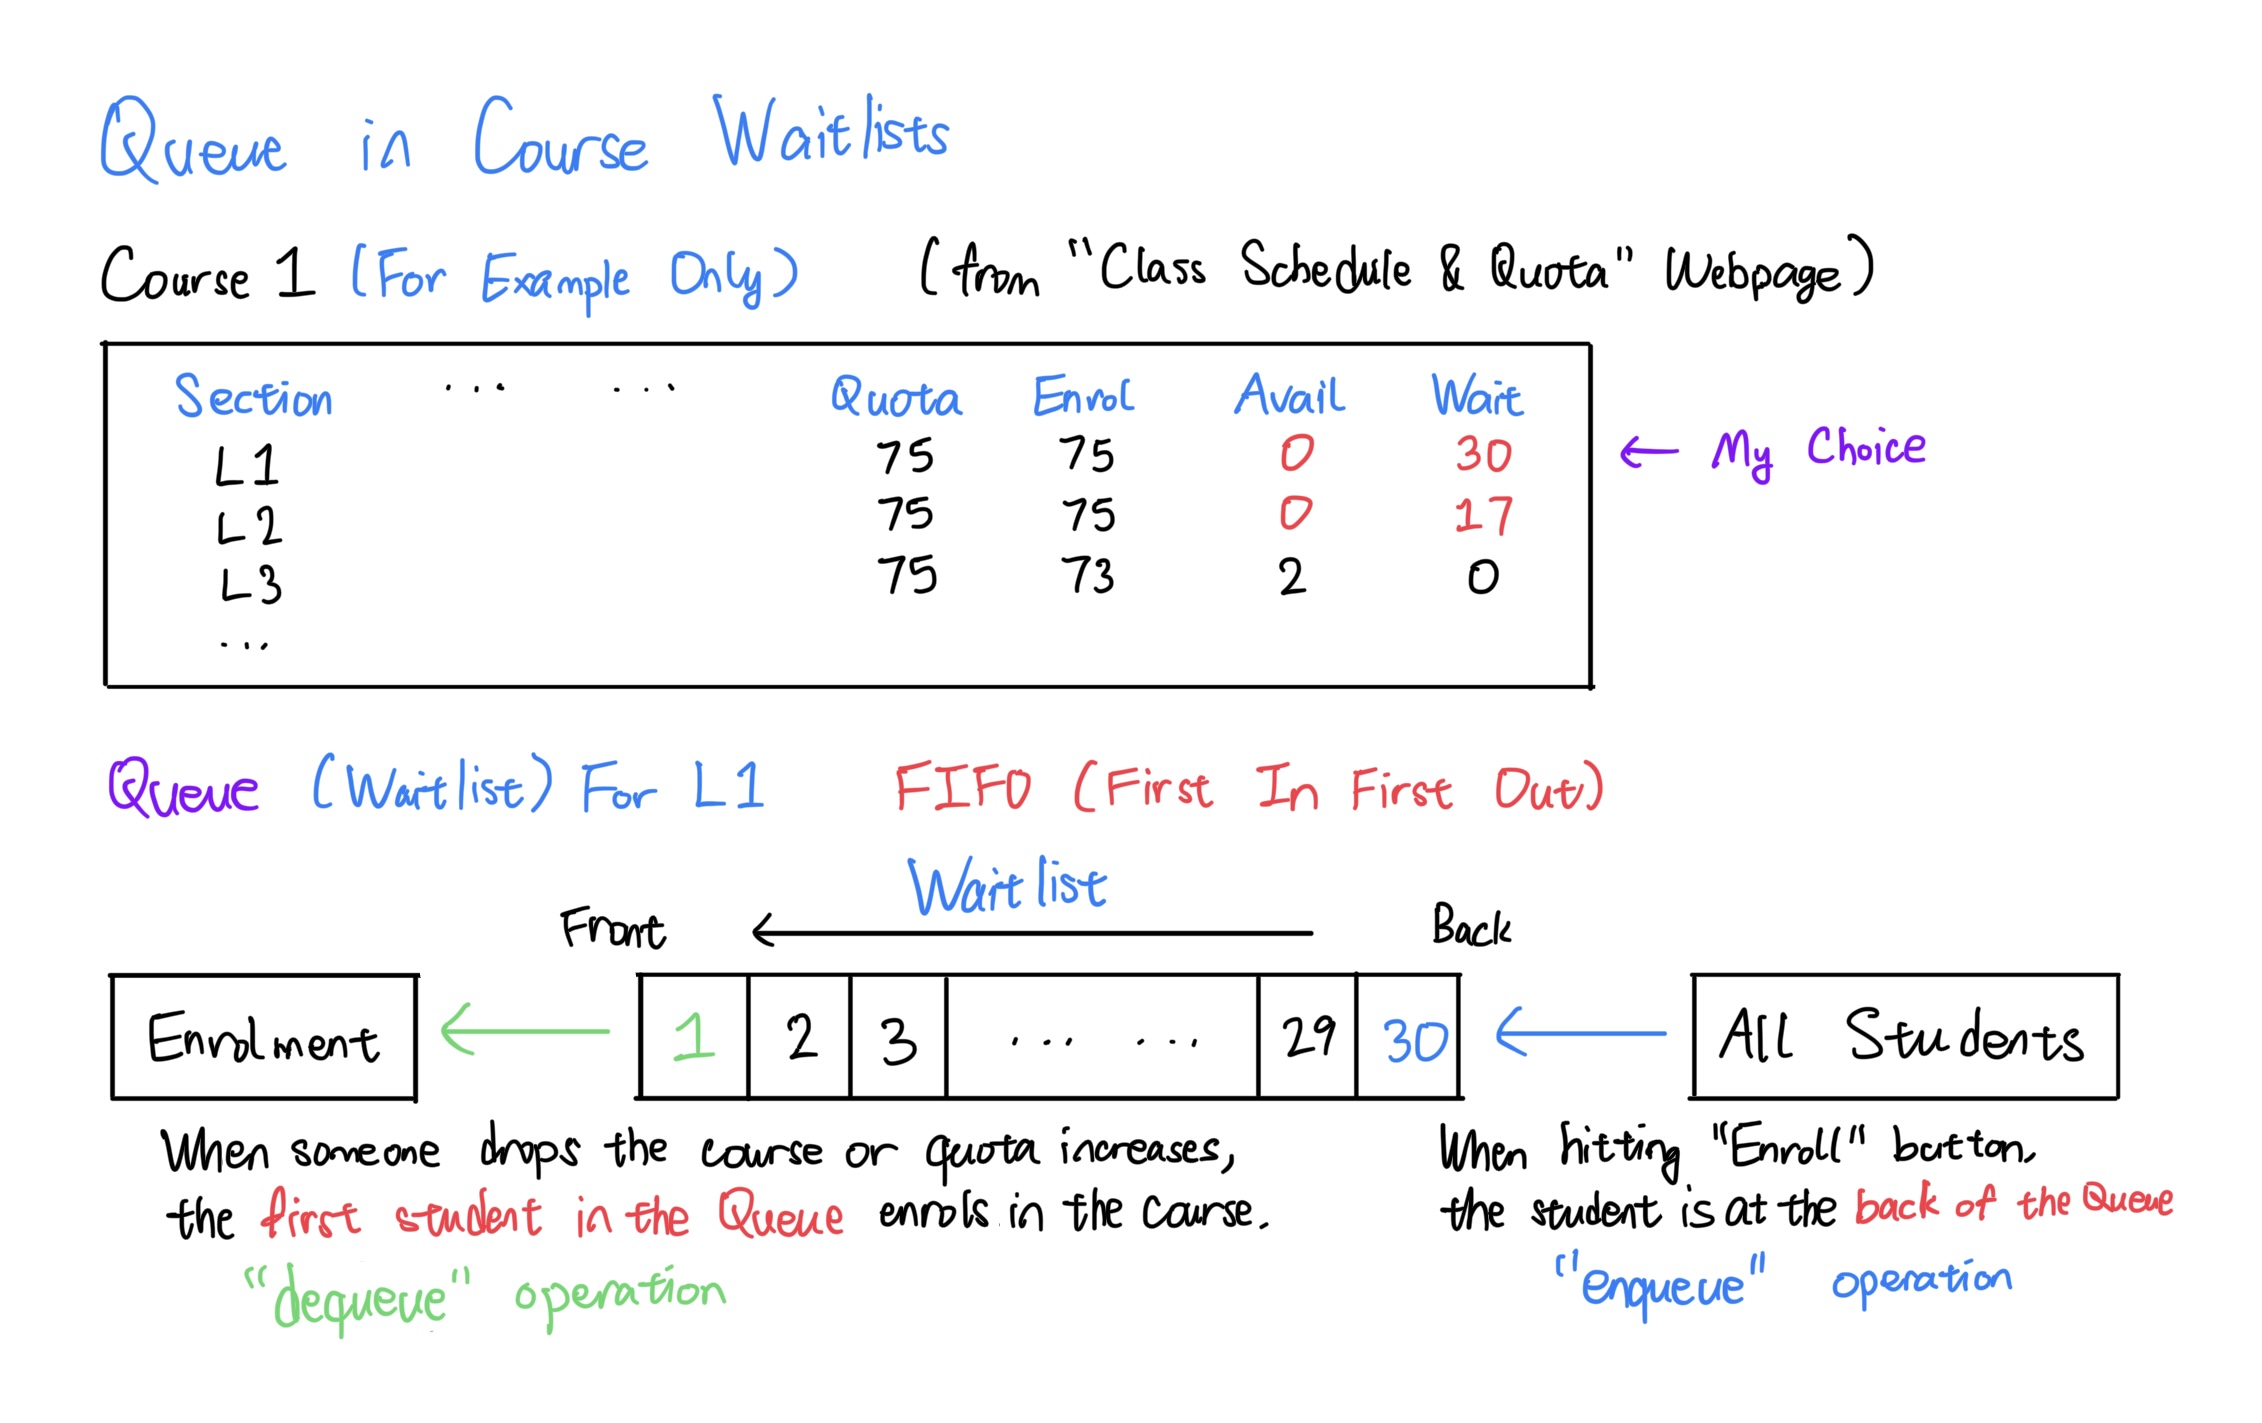 Queue in Course Waitlists
Course 1 (For Example Only) (from "Class Schedule & Quota" Webpage)
Section ... ... Quota Enrol Avail Wait
L1 75 75 0 30 ← My Choice
L2 75 75 0 17
L3 75 73 2 0
...
Queue (Waitlist) For L1 FIFO (First In First Out)
Waitlist
Front Back
Enrolment 1 2 3 ... ... 29 30 All Students
When someone drops the course or quota increases,
the first student in the Queue enrols in the course.
"dequeue" operation
When hitting "Enroll" button,
the student is at the back of the Queue
"enqueue" operation